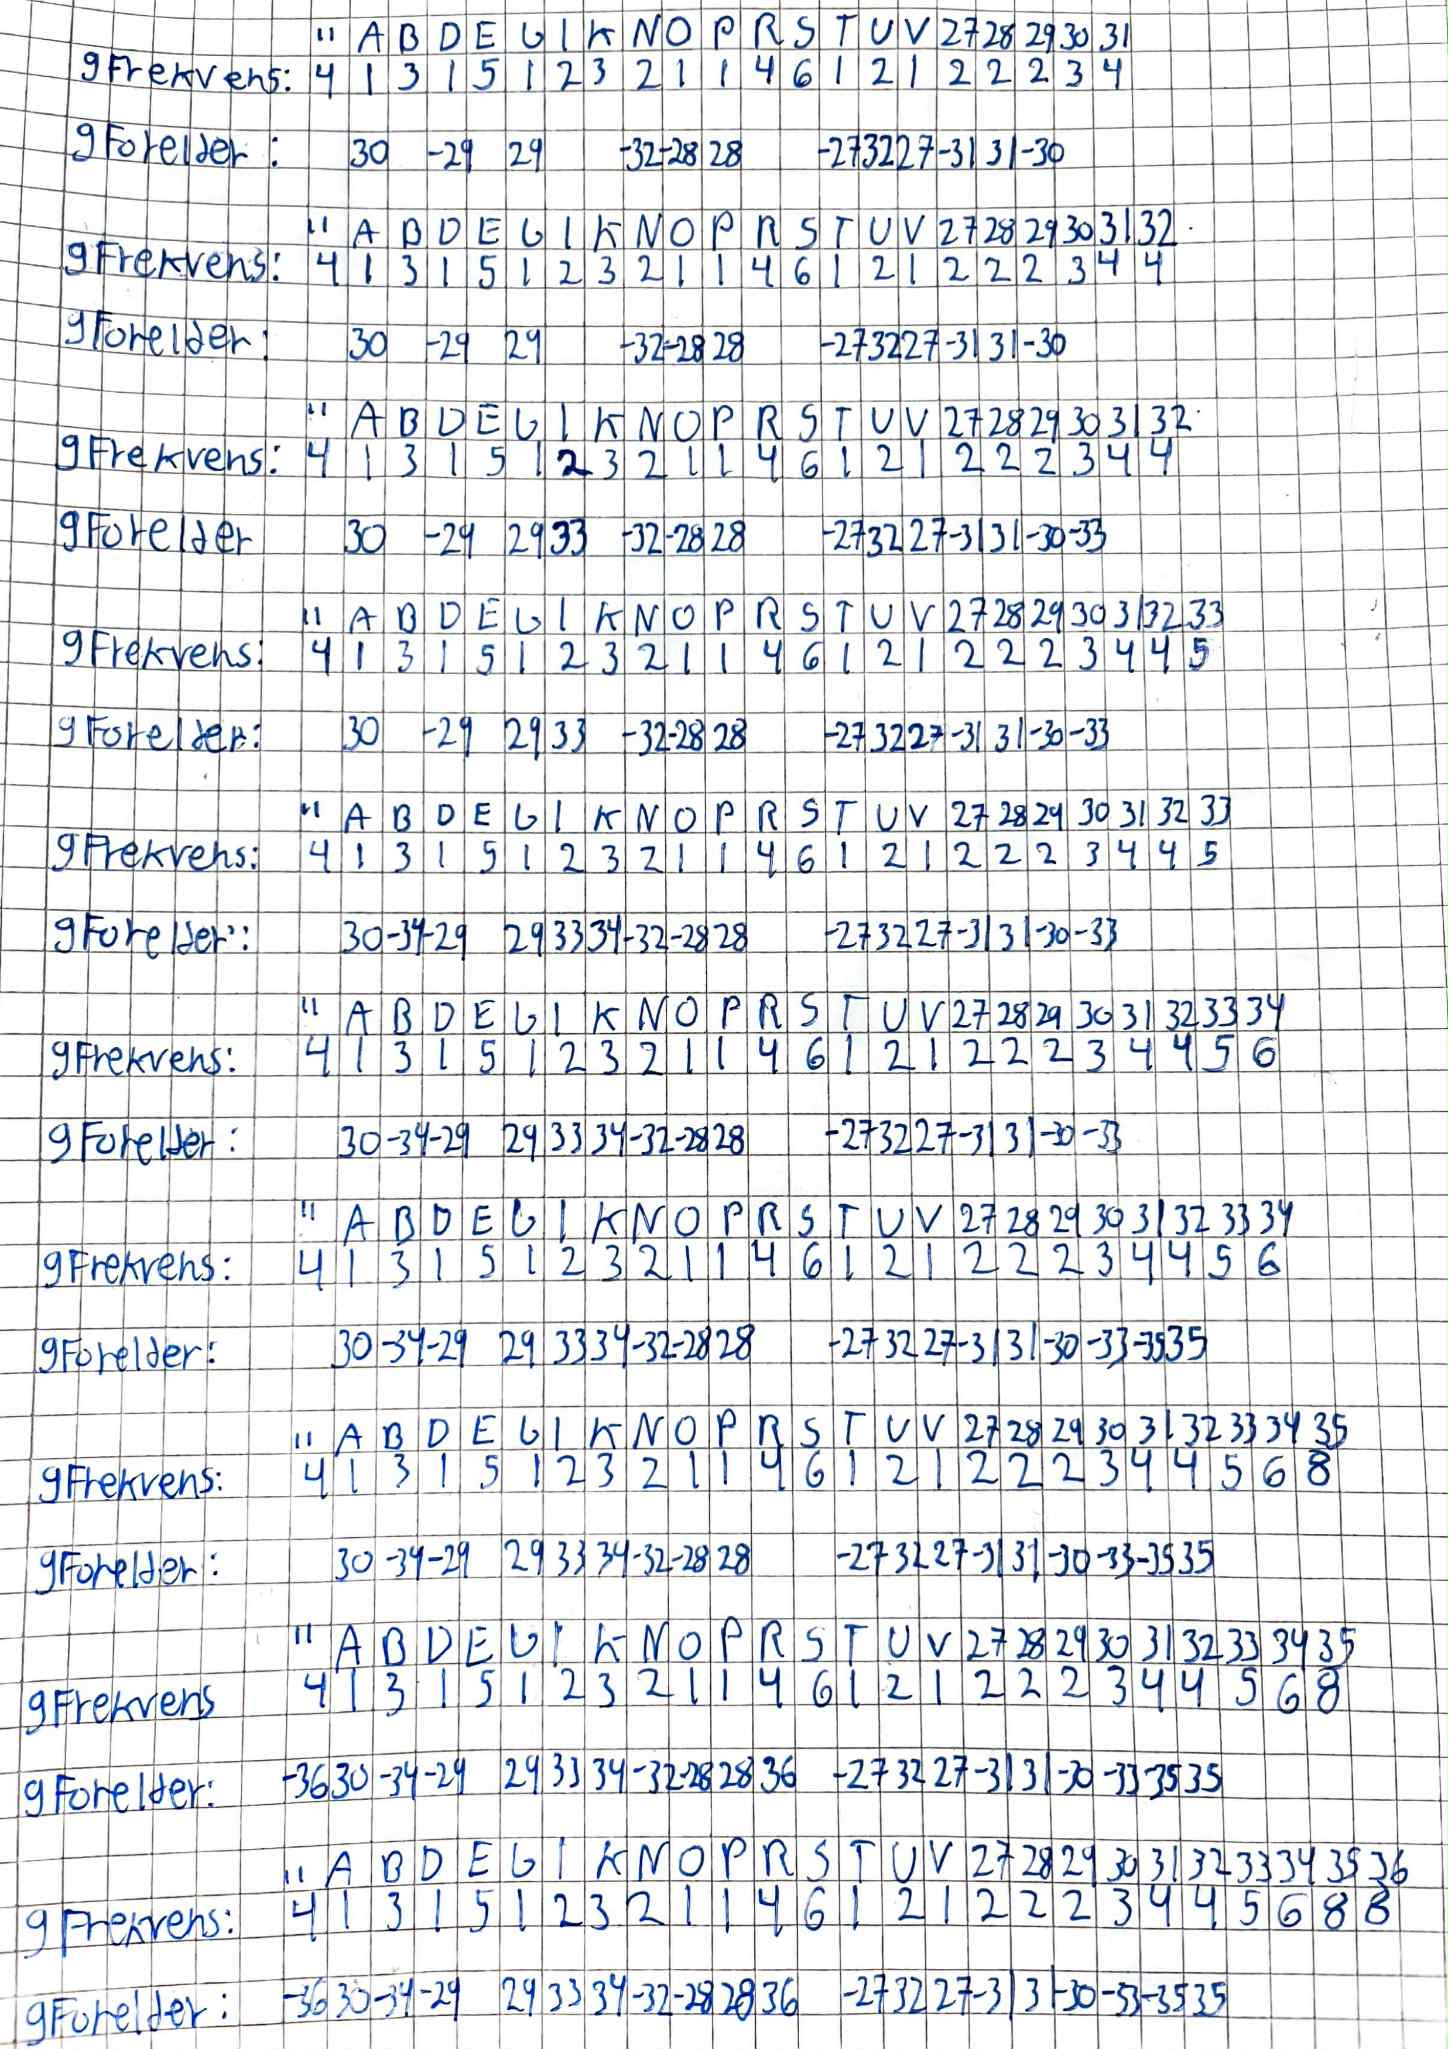 " A B D E G I K N O P R S T U V 27 28 29 30 31
gFrekvens: 4 1 3 1 5 1 2 3 2 1 1 4 6 1 2 1 2 2 2 3 4
gForelder: 30 -29 29 -32 -28 28 -27 32 27 -31 31 -30
" A B D E G I K N O P R S T U V 27 28 29 30 31 32
gFrekvens: 4 1 3 1 5 1 2 3 2 1 1 4 6 1 2 1 2 2 2 3 4 4
gForelder: 30 -29 29 -32 -28 28 -27 32 27 -31 31 -30
" A B D E G I K N O P R S T U V 27 28 29 30 31 32
gFrekvens: 4 1 3 1 5 1 2 3 2 1 1 4 6 1 2 1 2 2 2 3 4 4
gForelder 30 -29 29 33 -32 -28 28 -27 32 27 -31 31 -30 -33
" A B D E G I K N O P R S T U V 27 28 29 30 31 32 33
gFrekvens: 4 1 3 1 5 1 2 3 2 1 1 4 6 1 2 1 2 2 2 3 4 4 5
gForelder: 30 -29 29 33 -32 -28 28 -27 32 27 -31 31 -30 -33
" A B D E G I K N O P R S T U V 27 28 29 30 31 32 33
gFrekvens: 4 1 3 1 5 1 2 3 2 1 1 4 6 1 2 1 2 2 2 3 4 4 5
gForelder: 30 -34 -29 29 33 34 -32 -28 28 -27 32 27 -31 31 -30 -33
" A B D E G I K N O P R S T U V 27 28 29 30 31 32 33 34
gFrekvens: 4 1 3 1 5 1 2 3 2 1 1 4 6 1 2 1 2 2 2 3 4 4 5 6
gForelder: 30 -34 -29 29 33 34 -32 -28 28 -27 32 27 -31 31 -30 -33
" A B D E G I K N O P R S T U V 27 28 29 30 31 32 33 34
gFrekvens: 4 1 3 1 5 1 2 3 2 1 1 4 6 1 2 1 2 2 2 3 4 4 5 6
gForelder: 30 -34 -29 29 33 34 -32 -28 28 -27 32 27 -31 31 -30 -33 -35 35
" A B D E G I K N O P R S T U V 27 28 29 30 31 32 33 34 35
gFrekvens: 4 1 3 1 5 1 2 3 2 1 1 4 6 1 2 1 2 2 2 3 4 4 5 6 8
gForelder: 30 -34 -29 29 33 34 -32 -28 28 -27 32 27 -31 31 -30 -33 -35 35
" A B D E G I K N O P R S T U V 27 28 29 30 31 32 33 34 35
gFrekvens 4 1 3 1 5 1 2 3 2 1 1 4 6 1 2 1 2 2 2 3 4 4 5 6 8
gForelder: -36 30 -34 -29 29 33 34 -32 -28 28 36 -27 32 27 -31 31 -30 -33 -35 35
" A B D E G I K N O P R S T U V 27 28 29 30 31 32 33 34 35 36
gFrekvens: 4 1 3 1 5 1 2 3 2 1 1 4 6 1 2 1 2 2 2 3 4 4 5 6 8 8
gForelder: -36 30 -34 -29 29 33 34 -32 -28 28 36 -27 32 27 -31 31 -30 -33 -35 35